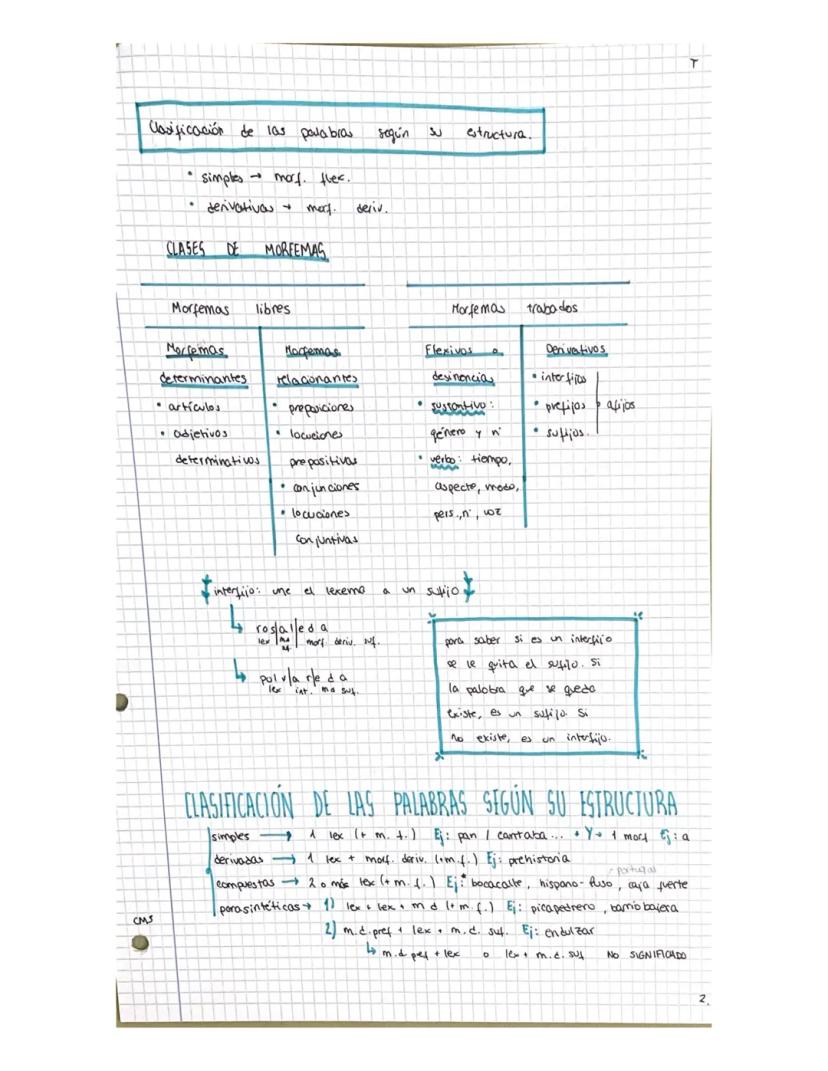 T
Clasificación de las palabras según su estructura.
• simples → morf. flex.
• derivativas → morf. deriv.
CLASES DE MORFEMAS
Morfemas libres
Morfemas determinantes
• artículos
• adjetivos
determinativos
Morfemas relacionantes
• preposiciones
• locuciones
prepositivas
• conjunciones
• locuciones
conjuntivas
Morfemas trabados
Flexivos o
desinencias
• sustantivo:
género y nº
• verbo: tiempo,
aspecto, modo,
pers., nº, voz
Derivativos
• interfijos
• prefijos
• sufijos.
afijos
interfijo: une el lexema a un sufijo
↳ ros/al/ed a
lex md suf. morf. deriv. suf.
↳ polv/ar/ed a
lex int. md suf.
para saber si es un interfijo
se le quita el sufijo. Si
la palabra que se queda
existe, es un sufijo. Si
no existe, es un interfijo.
CLASIFICACIÓN DE LAS PALABRAS SEGÚN SU ESTRUCTURA
simples → 1 lex (+ m. f.) Ej: pan / cantaba... + Y → 1 morf Ej: a
derivadas → 1 lex + morf. deriv. (+m.f.) Ej: prehistoria
portugal
compuestas → 2 o más lex (+ m. f.) Ej: bocacalle, hispano-luso, caja fuerte
parasintéticas → 1) lex + lex + m d (+ m. f.) Ej: picapedrero, barriobajera
2) m.d. pref + lex + m.d. suf. Ej: endulzar
↳ m.d pref + lex o lex + m.d. suf NO SIGNIFICADO
CMS
2.